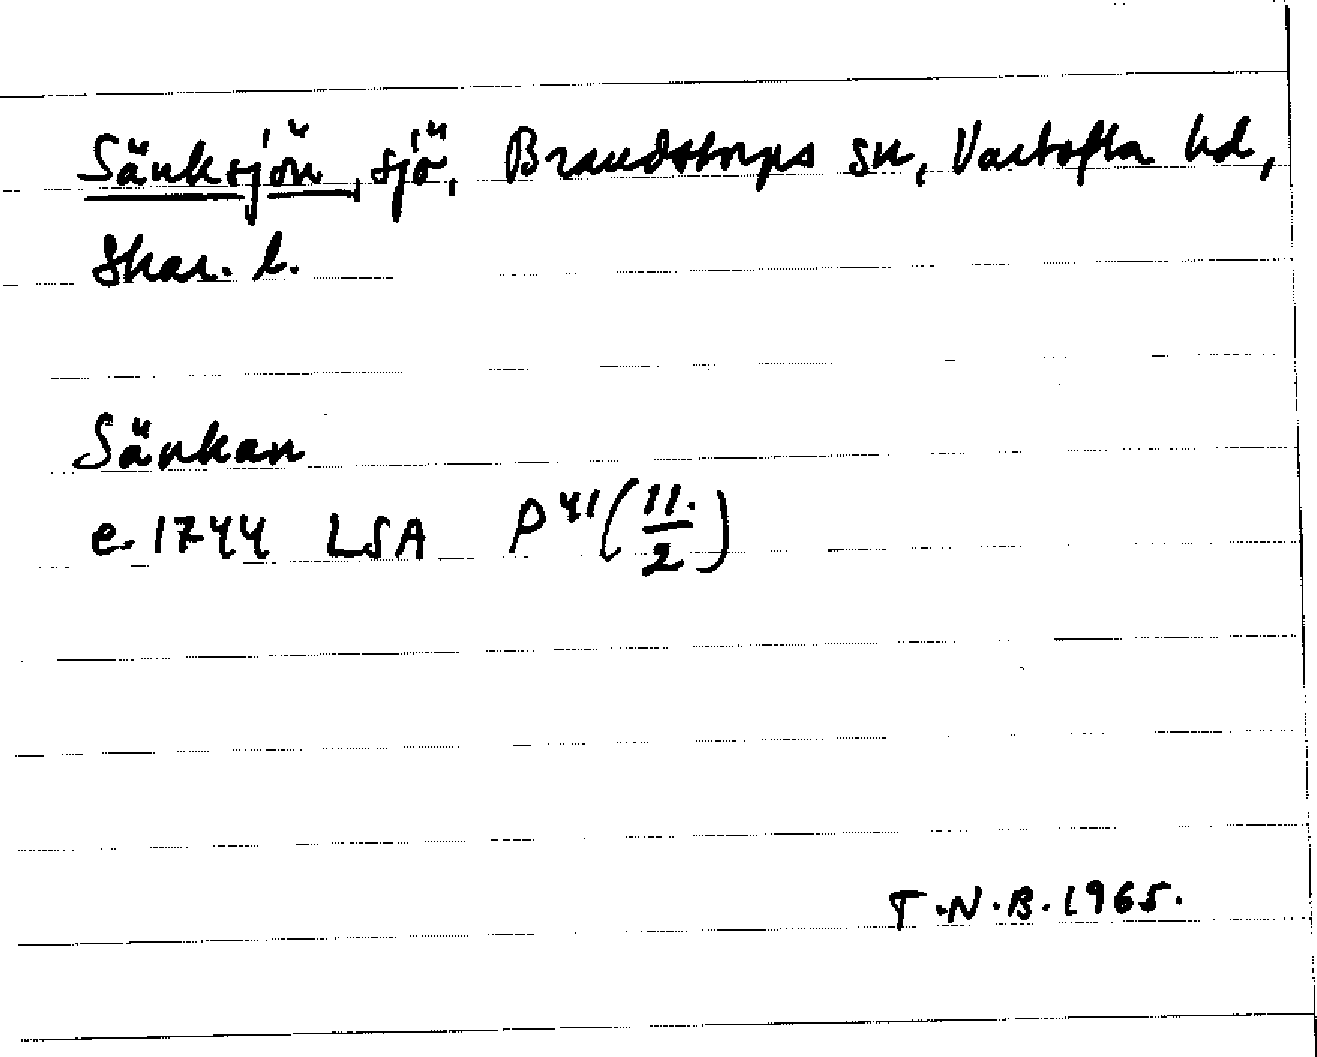 Sänksjön, sjö, Brandstorps sn, Vartofta hd,
Skar. l.
Sänkan
e. 1744 LSA P 41 (11./2)
T.N.B. 1965.